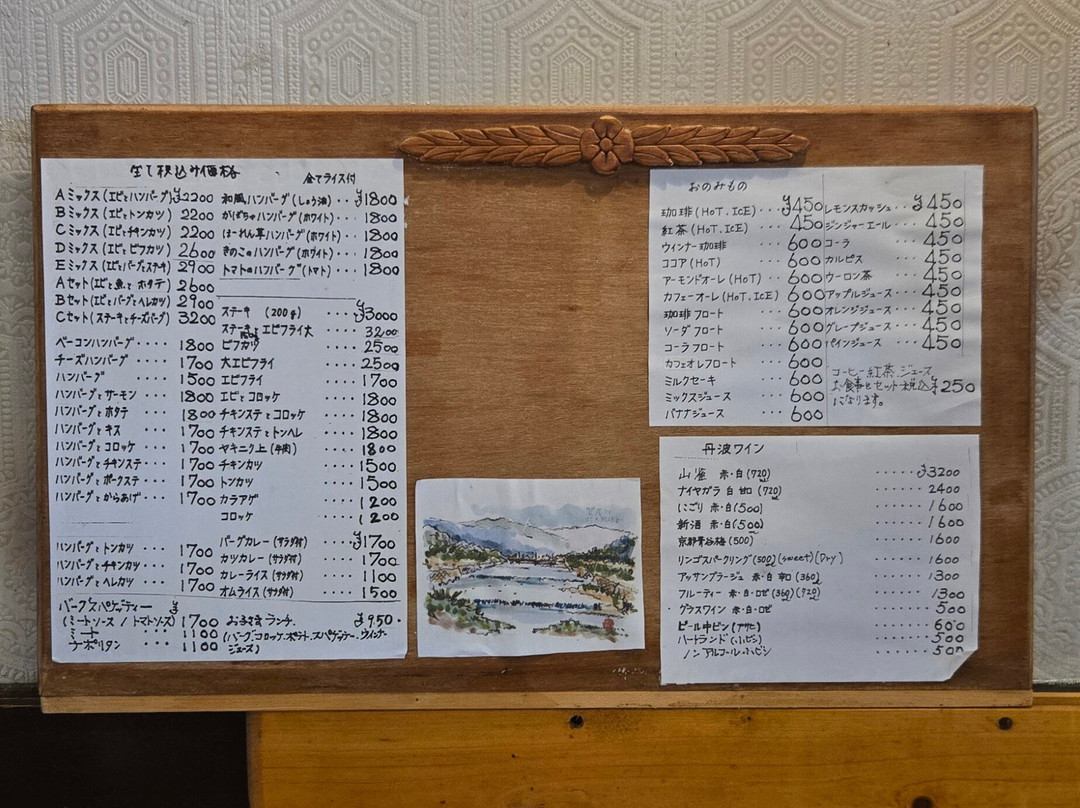 全て税込み価格
全てライス付
Aミックス(エビとハンバーグ)¥2200
Bミックス(エビとトンカツ) 2200
Cミックス(エビとチキンカツ) 2200
Dミックス(エビとビフカツ) 2600
Eミックス(エビとバーグとステーキ) 2900
Aセット(エビと魚とホタテ) 2600
Bセット(エビとバーグとヘレカツ) 2900
Cセット(ステーキとチーズバーグ) 3200
ベーコンハンバーグ ・・・・ 1800
チーズハンバーグ ・・・・ 1700
ハンバーグ ・・・・ 1500
ハンバーグとサーモン ・・・・ 1800
ハンバーグとホタテ ・・・・ 1800
ハンバーグとキス ・・・・ 1700
ハンバーグとコロッケ ・・・・ 1700
ハンバーグとチキンステ・・・・ 1700
ハンバーグとポークステ・・・・ 1700
ハンバーグとからあげ ・・・ 1700
ハンバーグとトンカツ ・・・ 1700
ハンバーグとチキンカツ ・・・ 1700
ハンバーグとヘレカツ ・・・ 1700
バーグスパゲッティー ¥
(ミートソース / トマトソース) 1700
ミート 1100
ナポリタン 1100
和風ハンバーグ(しょう油) ・・¥1800
かぼちゃハンバーグ(ホワイト)・・ 1800
ほーれん草ハンバーグ(ホワイト)・・ 1800
きのこのハンバーグ(ホワイト)・・ 1800
トマトのハンバーグ(トマト)・・ 1800
ステーキ (200g) ¥3000
ステーキとエビフライ大 3200
ビフカツ 2500
大エビフライ ・・・・ 2500
エビフライ ・・・・ 1700
エビとコロッケ ・・・・ 1800
チキンステとコロッケ ・・・・ 1800
チキンステとトンヘレ ・・・・ 1800
ヤキニク上(牛肉) ・・・・ 1800
チキンカツ ・・・・ 1500
トンカツ ・・・・ 1500
カラアゲ ・・・・ 1200
コロッケ ・・・・ 1200
バーグカレー(サラダ付) ・・・・¥1700
カツカレー(サラダ付) ・・・・ 1700
カレーライス(サラダ付) ・・・・ 1100
オムライス(サラダ付) ・・・・ 1500
おこさまランチ. ¥950.
(バーグ.コロッケ.ポテト.スパゲッテー.ウインナー
ジュース)
おのみもの
珈琲(HOT.ICE)・・・¥450
紅茶(HOT.ICE)・・・450
ウインナー珈琲 ・・・600
ココア(HOT) ・・・600
アーモンドオーレ(HOT) ・・・600
カフェオーレ(HOT.ICE)・・・600
珈琲フロート ・・・600
ソーダフロート ・・・600
コーラフロート ・・・600
カフェオレフロート ・・・600
ミルクセーキ ・・・600
ミックスジュース ・・・600
バナナジュース ・・・600
レモンスカッシュ・・¥450
ジンジャーエール・・450
コーラ ・・450
カルピス ・・450
ウーロン茶 ・・450
アップルジュース ・・450
オレンジジュース ・・450
グレープジュース ・・450
パインジュース ・・450
コーヒー紅茶.ジュース
お食事とセット税込¥250
になります。
丹波ワイン
山雀 赤・白(720) ・・・・・・¥3200
ナイヤガラ 白 甘口(720) ・・・・・・2400
にごり 赤・白(500) ・・・・・・1600
新酒 赤・白(500) ・・・・・・1600
京都青谷梅(500) ・・・・・・1600
リンゴスパークリング(500)(sweet)(Dry) ・・・・・・1600
アッサンブラージュ 赤・白 辛口(360) ・・・・・・1300
フルーティー 赤・白・ロゼ(360)(720) ・・・・・・1300
グラスワイン 赤・白・ロゼ ・・・・・・500
ビール中ビン(アサヒ) ・・・・・・600
ハートランド(小ビン) ・・・・・・500
ノンアルコール・小ビン ・・・・・・500